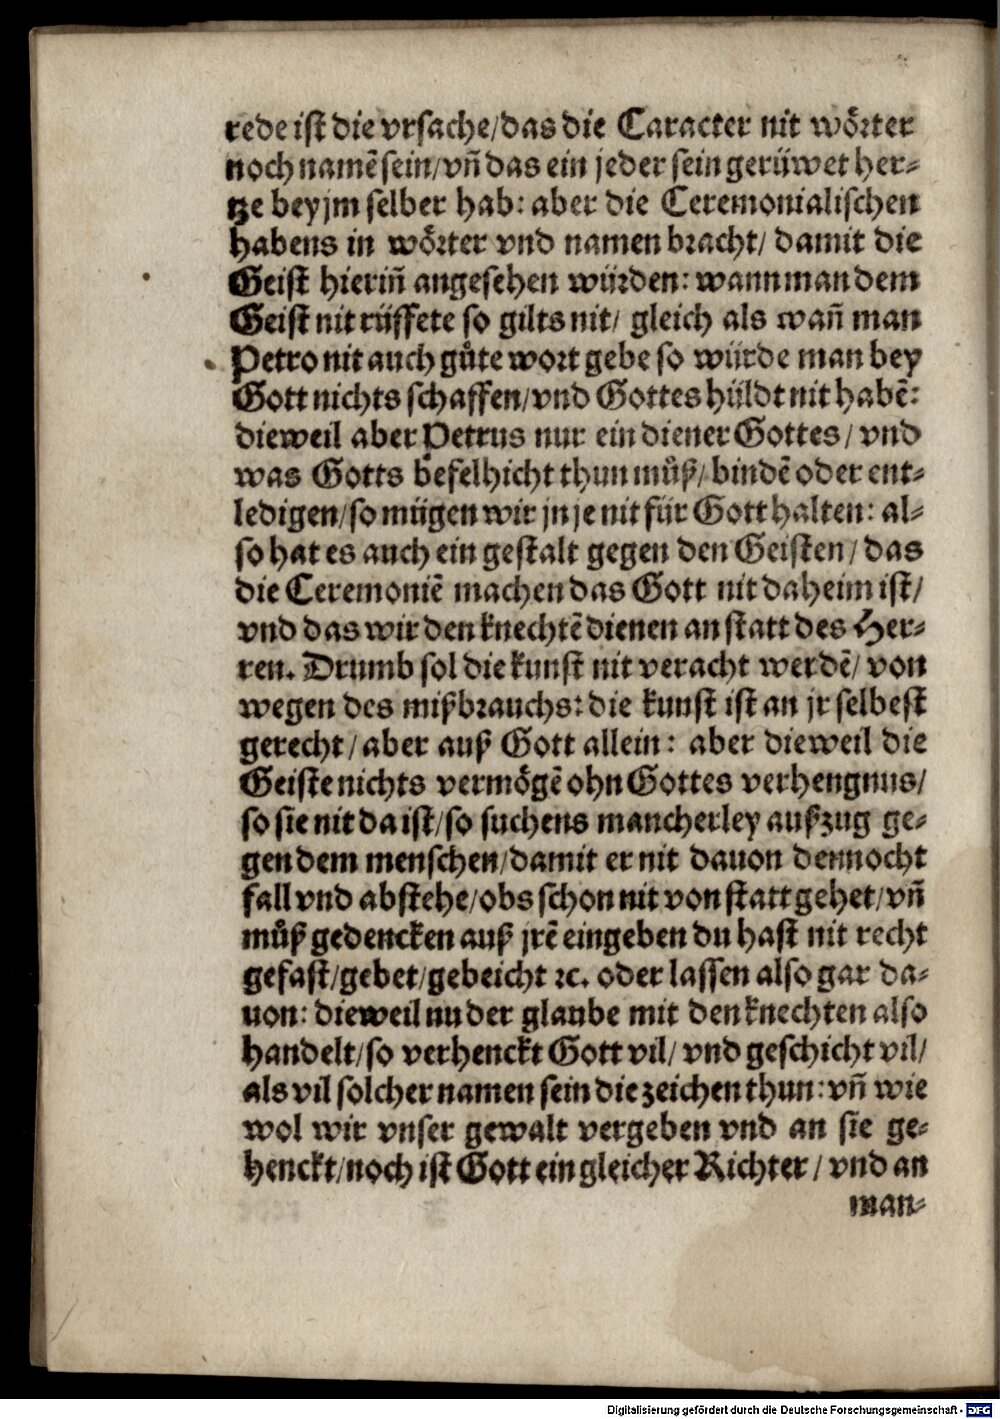 rede ist die vrsache/das die Caracter nit wörter
noch namẽ sein/vñ das ein jeder sein gerüwet her⸗
tze bey jm selber hab: aber die Ceremonialischen
habens in wörter vnd namen bracht/ damit die
Geist hieriñ angesehen würden: wann man dem
Geist nit rüffete so gilts nit/ gleich als wañ man
Petro nit auch gůte wort gebe so würde man bey
Gott nichts schaffen/vnd Gottes hüldt nit habẽ:
dieweil aber Petrus nur ein diener Gottes/ vnd
was Gotts befelhicht thun můß/ bindẽ oder ent⸗
ledigen/so mügen wir jn je nit für Gott halten: al⸗
so hat es auch ein gestalt gegen den Geisten/ das
die Ceremoniẽ machen das Gott nit daheim ist/
vnd das wir den knechtẽ dienen an statt des Her⸗
ren. Drumb sol die kunst nit veracht werdẽ/ von
wegen des mißbrauchs: die kunst ist an jr selbest
gerecht/ aber auß Gott allein: aber dieweil die
Geiste nichts vermögẽ ohn Gottes verhengnus/
so sie nit da ist/so suchens mancherley außzug ge⸗
gen dem menschen/damit er nit dauon dennocht
fall vnd abstehe/obs schon nit von statt gehet/vñ
můß gedencken auß jrẽ eingeben du hast nit recht
gefast/gebet/gebeicht ꝛc. oder lassen also gar da⸗
uon: dieweil nu der glaube mit den knechten also
handelt/so verhenckt Gott vil/ vnd geschicht vil/
als vil solcher namen sein die zeichen thun: vñ wie
wol wir vnser gewalt vergeben vnd an sie ge⸗
henckt/noch ist Gott ein gleicher Richter/ vnd an
man⸗
Digitalisierung gefördert durch die Deutsche Forschungsgemeinschaft - DFG